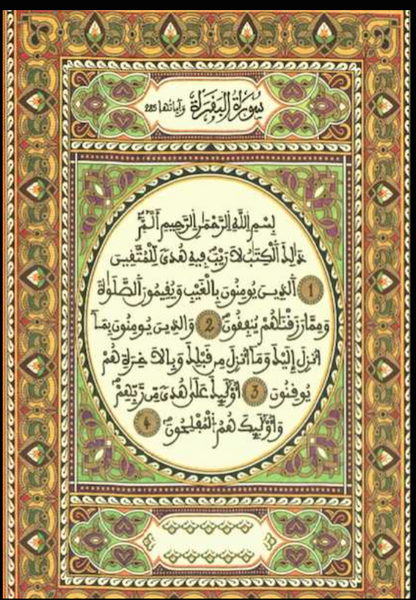 سورة البقرة وآياتها 285
بِسْمِ اللَّهِ الرَّحْمَٰنِ الرَّحِيمِ أَلَمِّ
ذَٰلِكَ الْكِتَٰبُ لَا رَيْبَ فِيهِ هُدًى لِّلْمُتَّقِينَ
1 الَّذِينَ يُومِنُونَ بِالْغَيْبِ وَيُقِيمُونَ الصَّلَوٰةَ
وَمِمَّا رَزَقْنَٰهُمْ يُنفِقُونَ 2 وَالَّذِينَ يُومِنُونَ بِمَا
أُنزِلَ إِلَيْكَ وَمَا أُنزِلَ مِن قَبْلِكَ وَبِالَاخِرَةِ هُمْ
يُوقِنُونَ 3 أُوْلَٰئِكَ عَلَىٰ هُدًى مِّن رَّبِّهِمْ
وَأُوْلَٰئِكَ هُمُ الْمُفْلِحُونَ 4